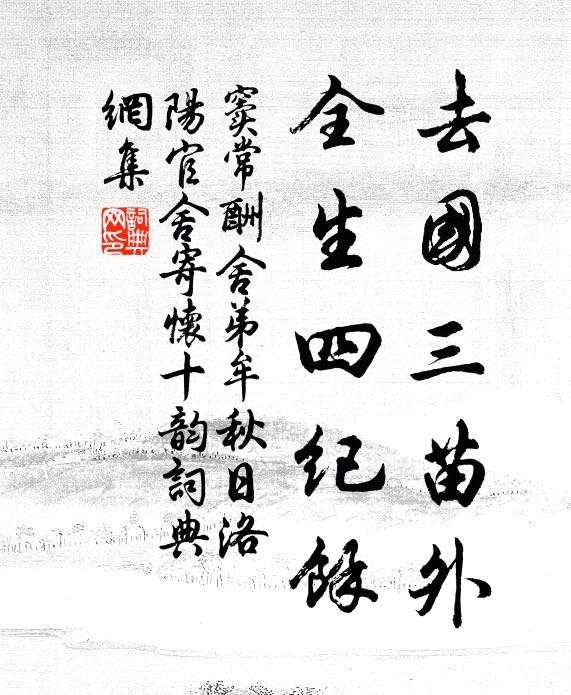 去國三苗外
全生四紀餘
竇常酬舍弟牟秋日洛
陽官舍寄懷十韵詞典
網集
詞典
网印